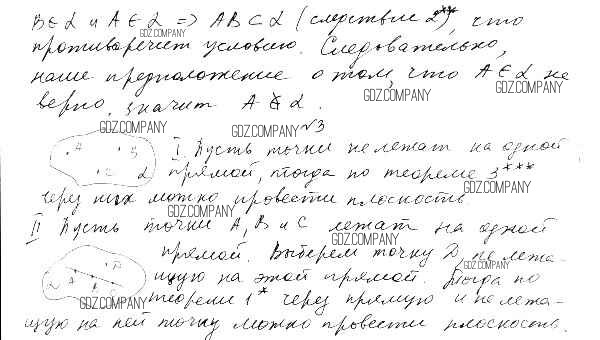 B ∈ α и A ∈ α => AB ⊂ α (следствие 2***), что
GDZ.COMPANY
противоречит условию. Следовательно,
наше предположение о том, что A ∈ α не
GDZ.COMPANY GDZ.COMPANY
верно, значит A ∉ α.
GDZ.COMPANY GDZ.COMPANY
№3
I Пусть точки не лежат на одной
прямой, тогда по теореме 3***
GDZ.COMPANY
через них можно провести плоскость
GDZ.COMPANY
II Пусть точки A, B и C лежат на одной
GDZ.COMPANY
прямой. Выберем точку D, не лежа-
GDZ.COMPANY
щую на этой прямой. Тогда по
GDZ.COMPANY теореме 1* через прямую и не лежа-
щую на ней точку можно провести плоскость.